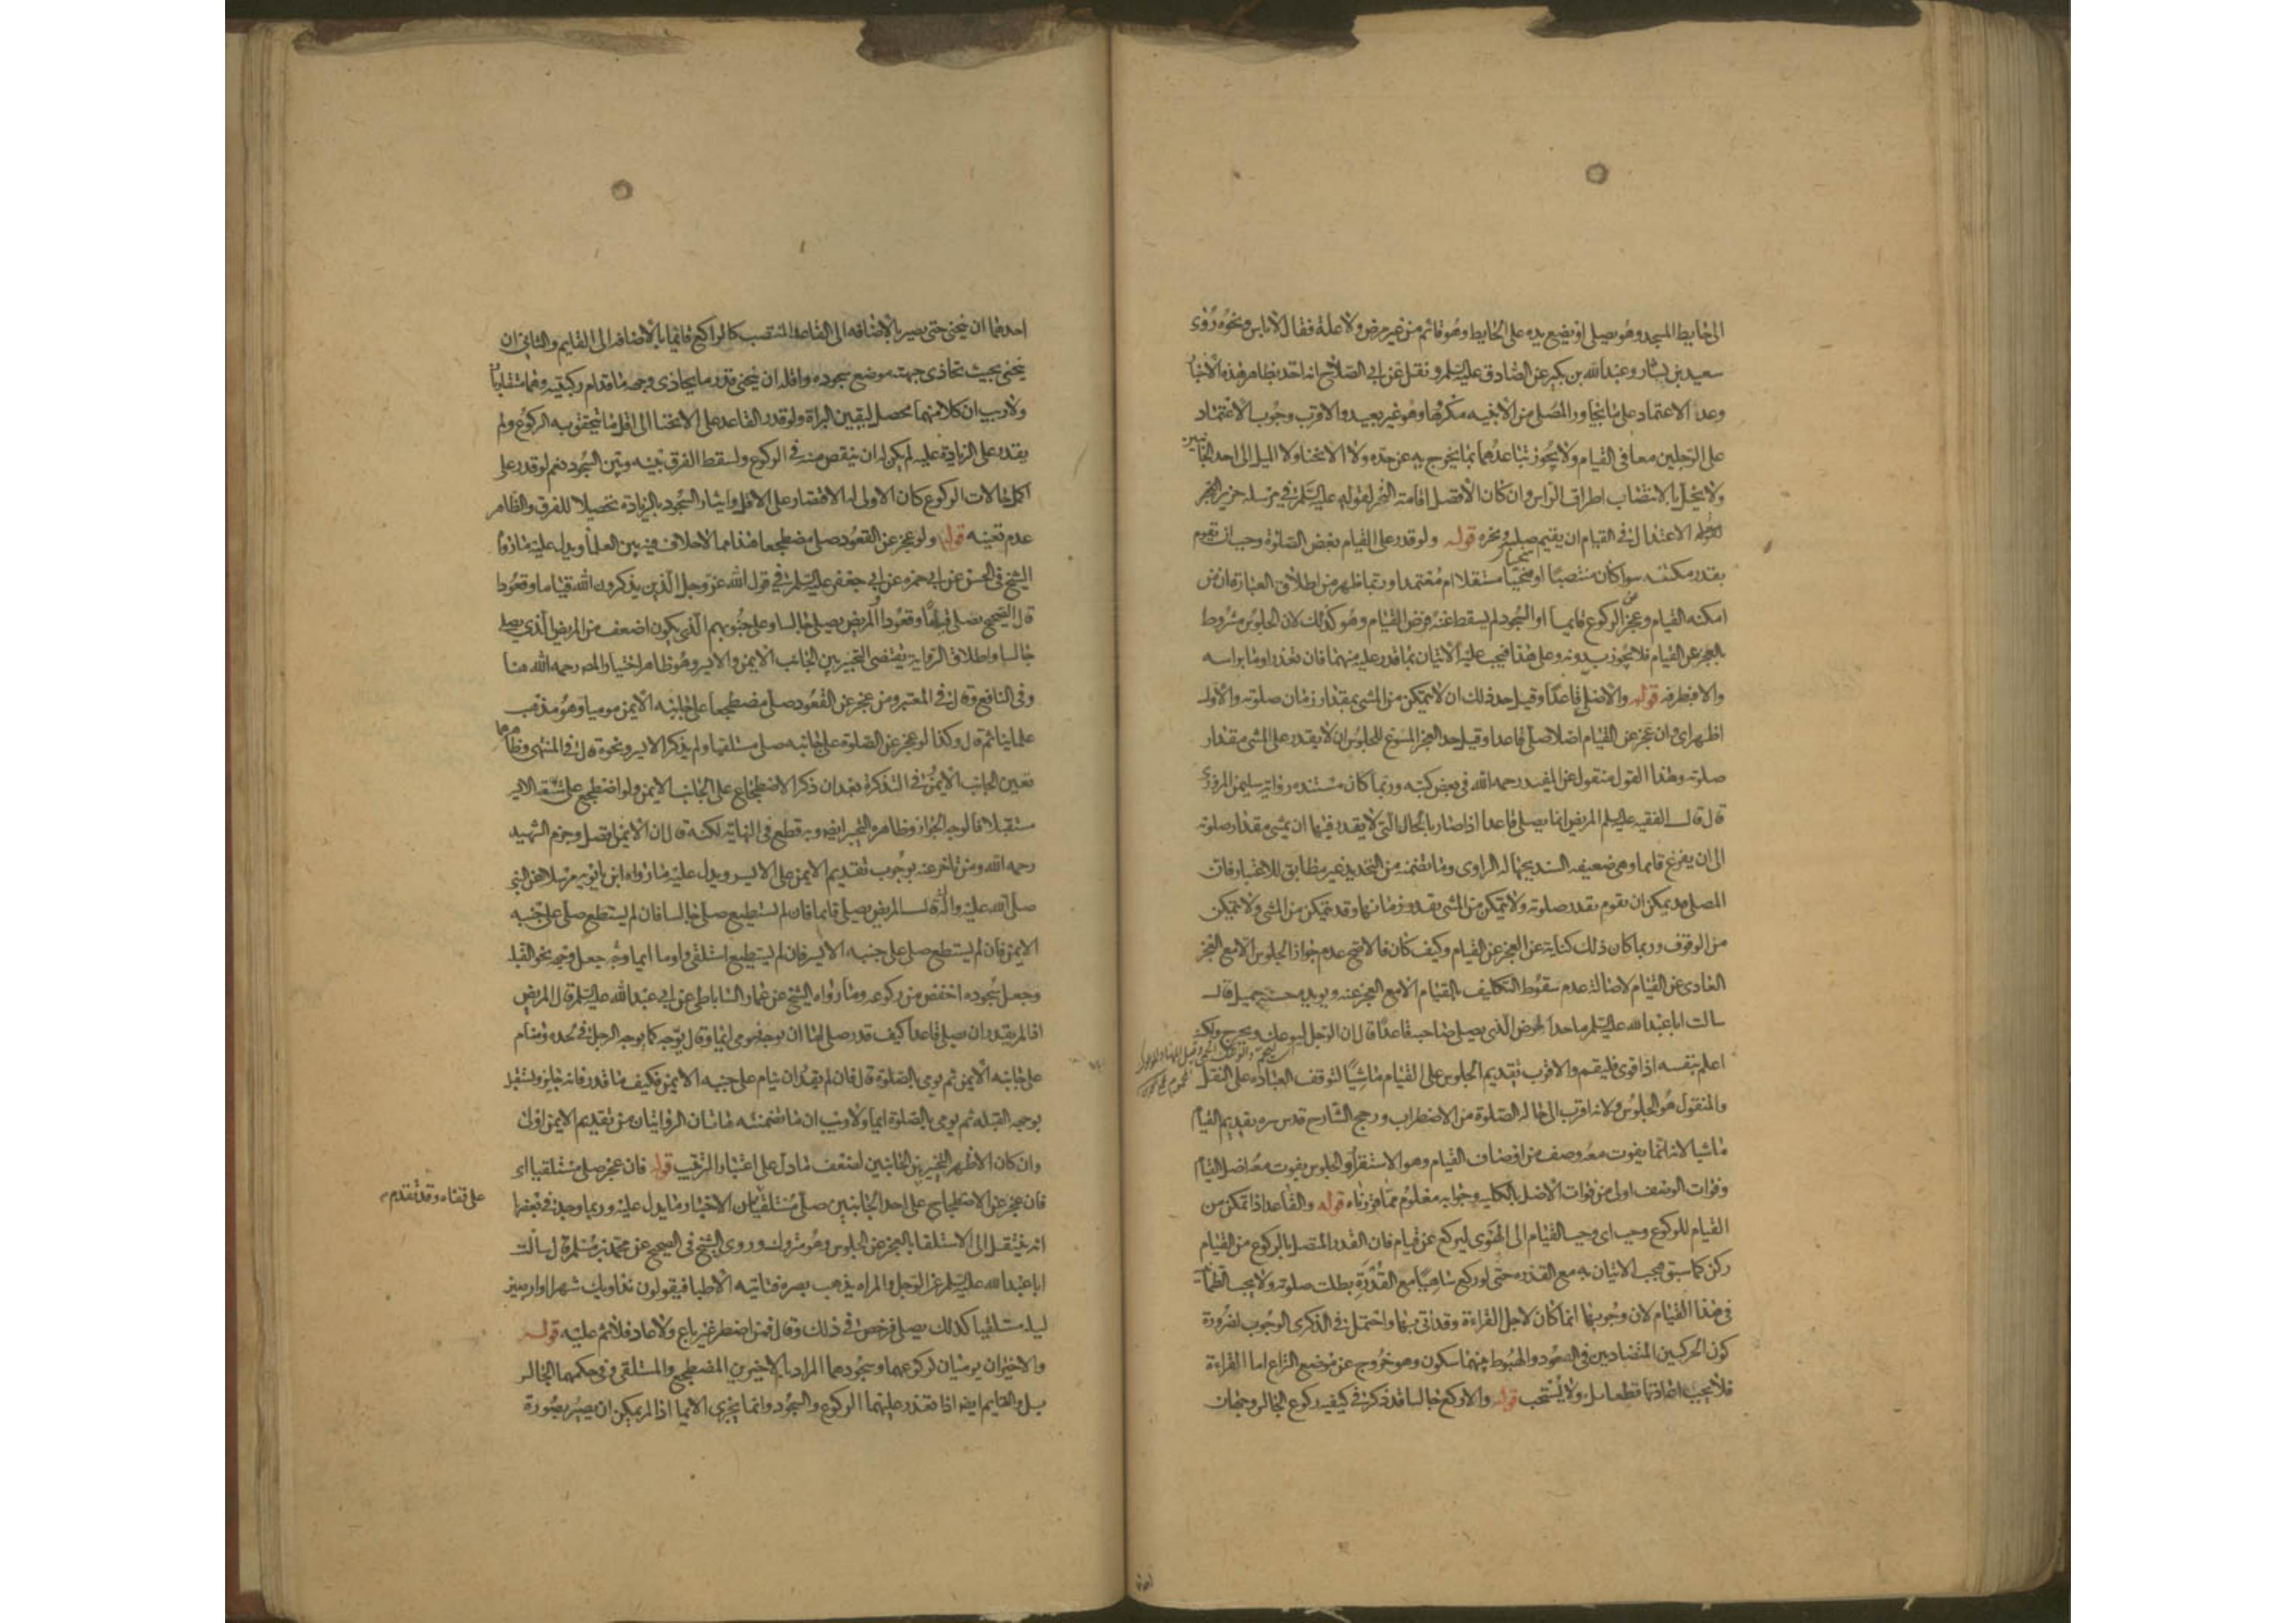 الى حايط المسجد وهو يصلى او يضع يده على الحايط وهو قائم من غير مرض ولا علة فقال لا باس ونحوه روى
سعيد بن يسار وعبدالله بن بكير عن الصادق عليه السلم ونقل عن ابى الصلاح انه اخذ بظاهر هذه الاخبار
وعد الاعتماد على ما يجاور المصلى من الابنيه مكروها وهو غير بعيد والاقرب وجوب الاعتماد
على الرجلين معا فى القيام ولا يجوز تباعدهما بما يخرج به عن حده ولا الانحنا ولا الميل الى احد الجانبين
ولا يخل بالانتصاب اطراق الراس وان كان الافضل اقامة النحر لقوله عليه السلم فى مرسله حريز النحر
الاعتدال فى القيام ان يقيم صلبه ونحره قوله ولو قدر على القيام بعض الصلوة وجب ان يقوم
بقدر مكنته سوا كان منتصبا او منحنيا مستقلا ام معتمدا وربما ظهر من اطلاق العبارة ان من
امكنه القيام وعجز عن الركوع قايما او السجود لم يسقط عنه فرض القيام وهو كذلك لان الجلوس مشروط
بالعجز عن القيام فلا يجوز بدونه وعلى هذا فيجب عليه الاتيان بما قدر عليه منهما فان تعذرا اوما براسه
والا فبطرفه قوله والا صلى قاعدا وقيل حد ذلك ان لا يتمكن من المشى بمقدار زمان صلوته والاول
اظهر اى وان عجز عن القيام اصلا صلى قاعدا وقيل حد العجز المسوغ للجلوس ان لا يقدر على المشى مقدار
صلوته وهذا القول منقول عن المفيد رحمه الله فى بعض كتبه وربما كان مستنده رواية سليمن المروزى
قال قال الفقيه عليه السلم المريض انما يصلى قاعدا اذا صار بالحال التى لا يقدر فيها ان يمشى مقدار صلوته
الى ان يفرغ قايما وهى ضعيفه السند بجهاله الراوى وما تضمنه من التحديد غير مطابق للاعتبار فان
المصلى قد يمكن ان يقوم بقدر صلوته ولا يتمكن من المشى بقدر زمانها وقد يتمكن من المشى ولا يتمكن
من الوقوف وربما كان ذلك كناية عن العجز عن القيام وكيف كان فالاصح عدم جواز الجلوس الا مع العجز
العادى عن القيام لاصالة عدم سقوط التكليف بالقيام الا مع العجز عنه ويويده حسنة جميل قال
سالت ابا عبدالله عليه السلم ما حد المرض الذى يصلى صاحبه قاعدا قال ان الرجل ليوعك ويحرج ولكنه
اعلم بنفسه اذا قوى فليقم والاقرب تقديم الجلوس على القيام ماشيا لتوقف العبادة على النقل
والمنقول هو الجلوس ولانه اقرب الى حاله الصلوة من الاضطراب ورجح الشارح قدس سره تقديم القيام
ماشيا لانه انما يفوت معه وصف من اوصاف القيام وهو الاستقرار والجلوس يفوت معه اصل القيام
وفوات الوصف اولى من فوات الاصل بالكليه وجوابه معلوم مما قررناه قوله والقاعد اذا تمكن من
القيام للركوع وجب اى وجب القيام الى الهوى ليركع عن قيام فان القدر المتصل بالركوع من القيام
ركن كما سبق فيجب الاتيان به مع القدرة حتى لو ركع ساهيا مع القدرة بطلت صلوته ولا يجب الطمأنينة
فى هذا القيام لان وجوبها انما كان لاجل القراءة وقد اتى بها واحتمل فى الذكرى الوجوب لضرورة
كون الحركتين المتضادتين فى الصعود والهبوط بينهما سكون وهو خروج عن موضع النزاع اما القراءة
فلا يجب اعادتها قطعا بل ولا يستحب قوله والا ركع جالسا قد ذكر فى كيفيه ركوع الجالس وجهان
احدهما ان ينحنى حتى يصير بالاضافه الى القاعد المنتصب كالراكع قايما بالاضافه الى القايم والثانى ان
ينحنى بحيث تحاذى جبهته موضع سجوده واقله ان ينحنى قدر ما يحاذى وجهه ما قدام ركبتيه وهما متقاربان
ولا ريب ان كلا منهما محصل ليقين البراة ولو قدر القاعد على الانحنا الى اقل ما يتحقق به الركوع ولم
يقدر على الزيادة عليه لم يكن له ان ينقص منه فى الركوع ولسقط الفرق بينه وبين السجود نعم لو قدر على
اكمل حالات الركوع كان الاولى له الاقتصار على الاقل وايثار السجود بالزيادة تحصيلا للفرق والظاهر
عدم تعينه قوله ولو عجز عن القعود صلى مضطجعا هذا مما لا خلاف فيه بين العلما ويدل عليه ما رواه
الشيخ فى الحسن عن ابى حمزه عن ابى جعفر عليه السلم فى قول الله عز وجل الذين يذكرون الله قياما وقعودا
قال الصحيح يصلى قياما وقعودا المريض يصلى جالسا وعلى جنوبهم الذى يكون اضعف من المريض الذى يصلى
جالسا واطلاق الرواية يقتضى التخيير بين الجانب الايمن والايسر وهو ظاهر اختيار المصه رحمه الله هنا
وفى النافع وقال فى المعتبر ومن عجز عن القعود صلى مضطجعا على جانبه الايمن موميا وهو مذهب
علماينا ثم قال وكذا لو عجز عن الصلوة على جانبه صلى مستلقيا ولم يذكر الايسر ونحوه قال فى المنتهى وظاهرهما
تعين الجانب الايمن وفى التذكرة بعد ان ذكر الاضطجاع على الجانب الايمن ولو اضطجع على شقه الايسر
مستقبلا فالوجه الجواز وظاهره التخيير ايضه وبه قطع فى النهاية لكنه قال ان الايمن افضل وجزم الشهيد
رحمه الله ومن تاخر عنه بوجوب تقديم الايمن على الايسر ويدل عليه ما رواه ابن بابويه مرسلا عن النبى
صلى الله عليه واله قال المريض يصلى قايما فان لم يستطيع صلى جالسا فان لم يستطع صلى على جنبه
الايمن فان لم يستطع صلى على جنبه الايسر فان لم يستطيع استلقى واوما ايماء وجعل وجهه نحو القبله
وجعل سجوده اخفض من ركوعه وما رواه الشيخ عن عمار الساباطى عن ابى عبدالله عليه السلم قال المريض
اذا لم يقدر ان يصلى قاعدا كيف قدر صلى اما ان يوجه فيومى ايما وقال يوجه كما يوجه الرجل فى لحده وينام
على جانبه الايمن ثم يومى بالصلوة قال فان لم يقدر ان ينام على جنبه الايمن فكيف ما قدر فانه جايز ويستقبل
بوجهه القبله ثم يومى بالصلوة ايما ولا ريب ان ما تضمنته هاتان الروايتان من تقديم الايمن اولى
وان كان الاظهر التخيير بين الجانبين لضعف ما دل على اعتبار الترتيب قوله فان عجز صلى مستلقيا اى
فان عجز عن الاضطجاع على احد الجانبين صلى مستلقيا على قفاه وقد تقدم من الاخبار ما يدل عليه وربما وجد فى بعضها
انه ينتقل الى الاستلقا بالعجز عن الجلوس وهو متروك وروى الشيخ فى الصحيح عن محمد بن مسلم قال سالت
ابا عبدالله عليه السلم عن الرجل والمراه يذهب بصره فتاتيه الاطبا فيقولون نداويك شهرا او اربعين
ليله مستلقيا كذلك يصلى فرخص فى ذلك وقال فمن اضطر غير باغ ولا عاد فلا اثم عليه قوله
والاخيران يوميان لركوعهما وسجودهما المراد بالاخيرين المضطجع والمستلقى وفى حكمهما الجالس
بل والقايم ايضه اذا تعذر عليهما الركوع والسجود وانما يجزى الايما اذا لم يمكن ان يصير بصورة